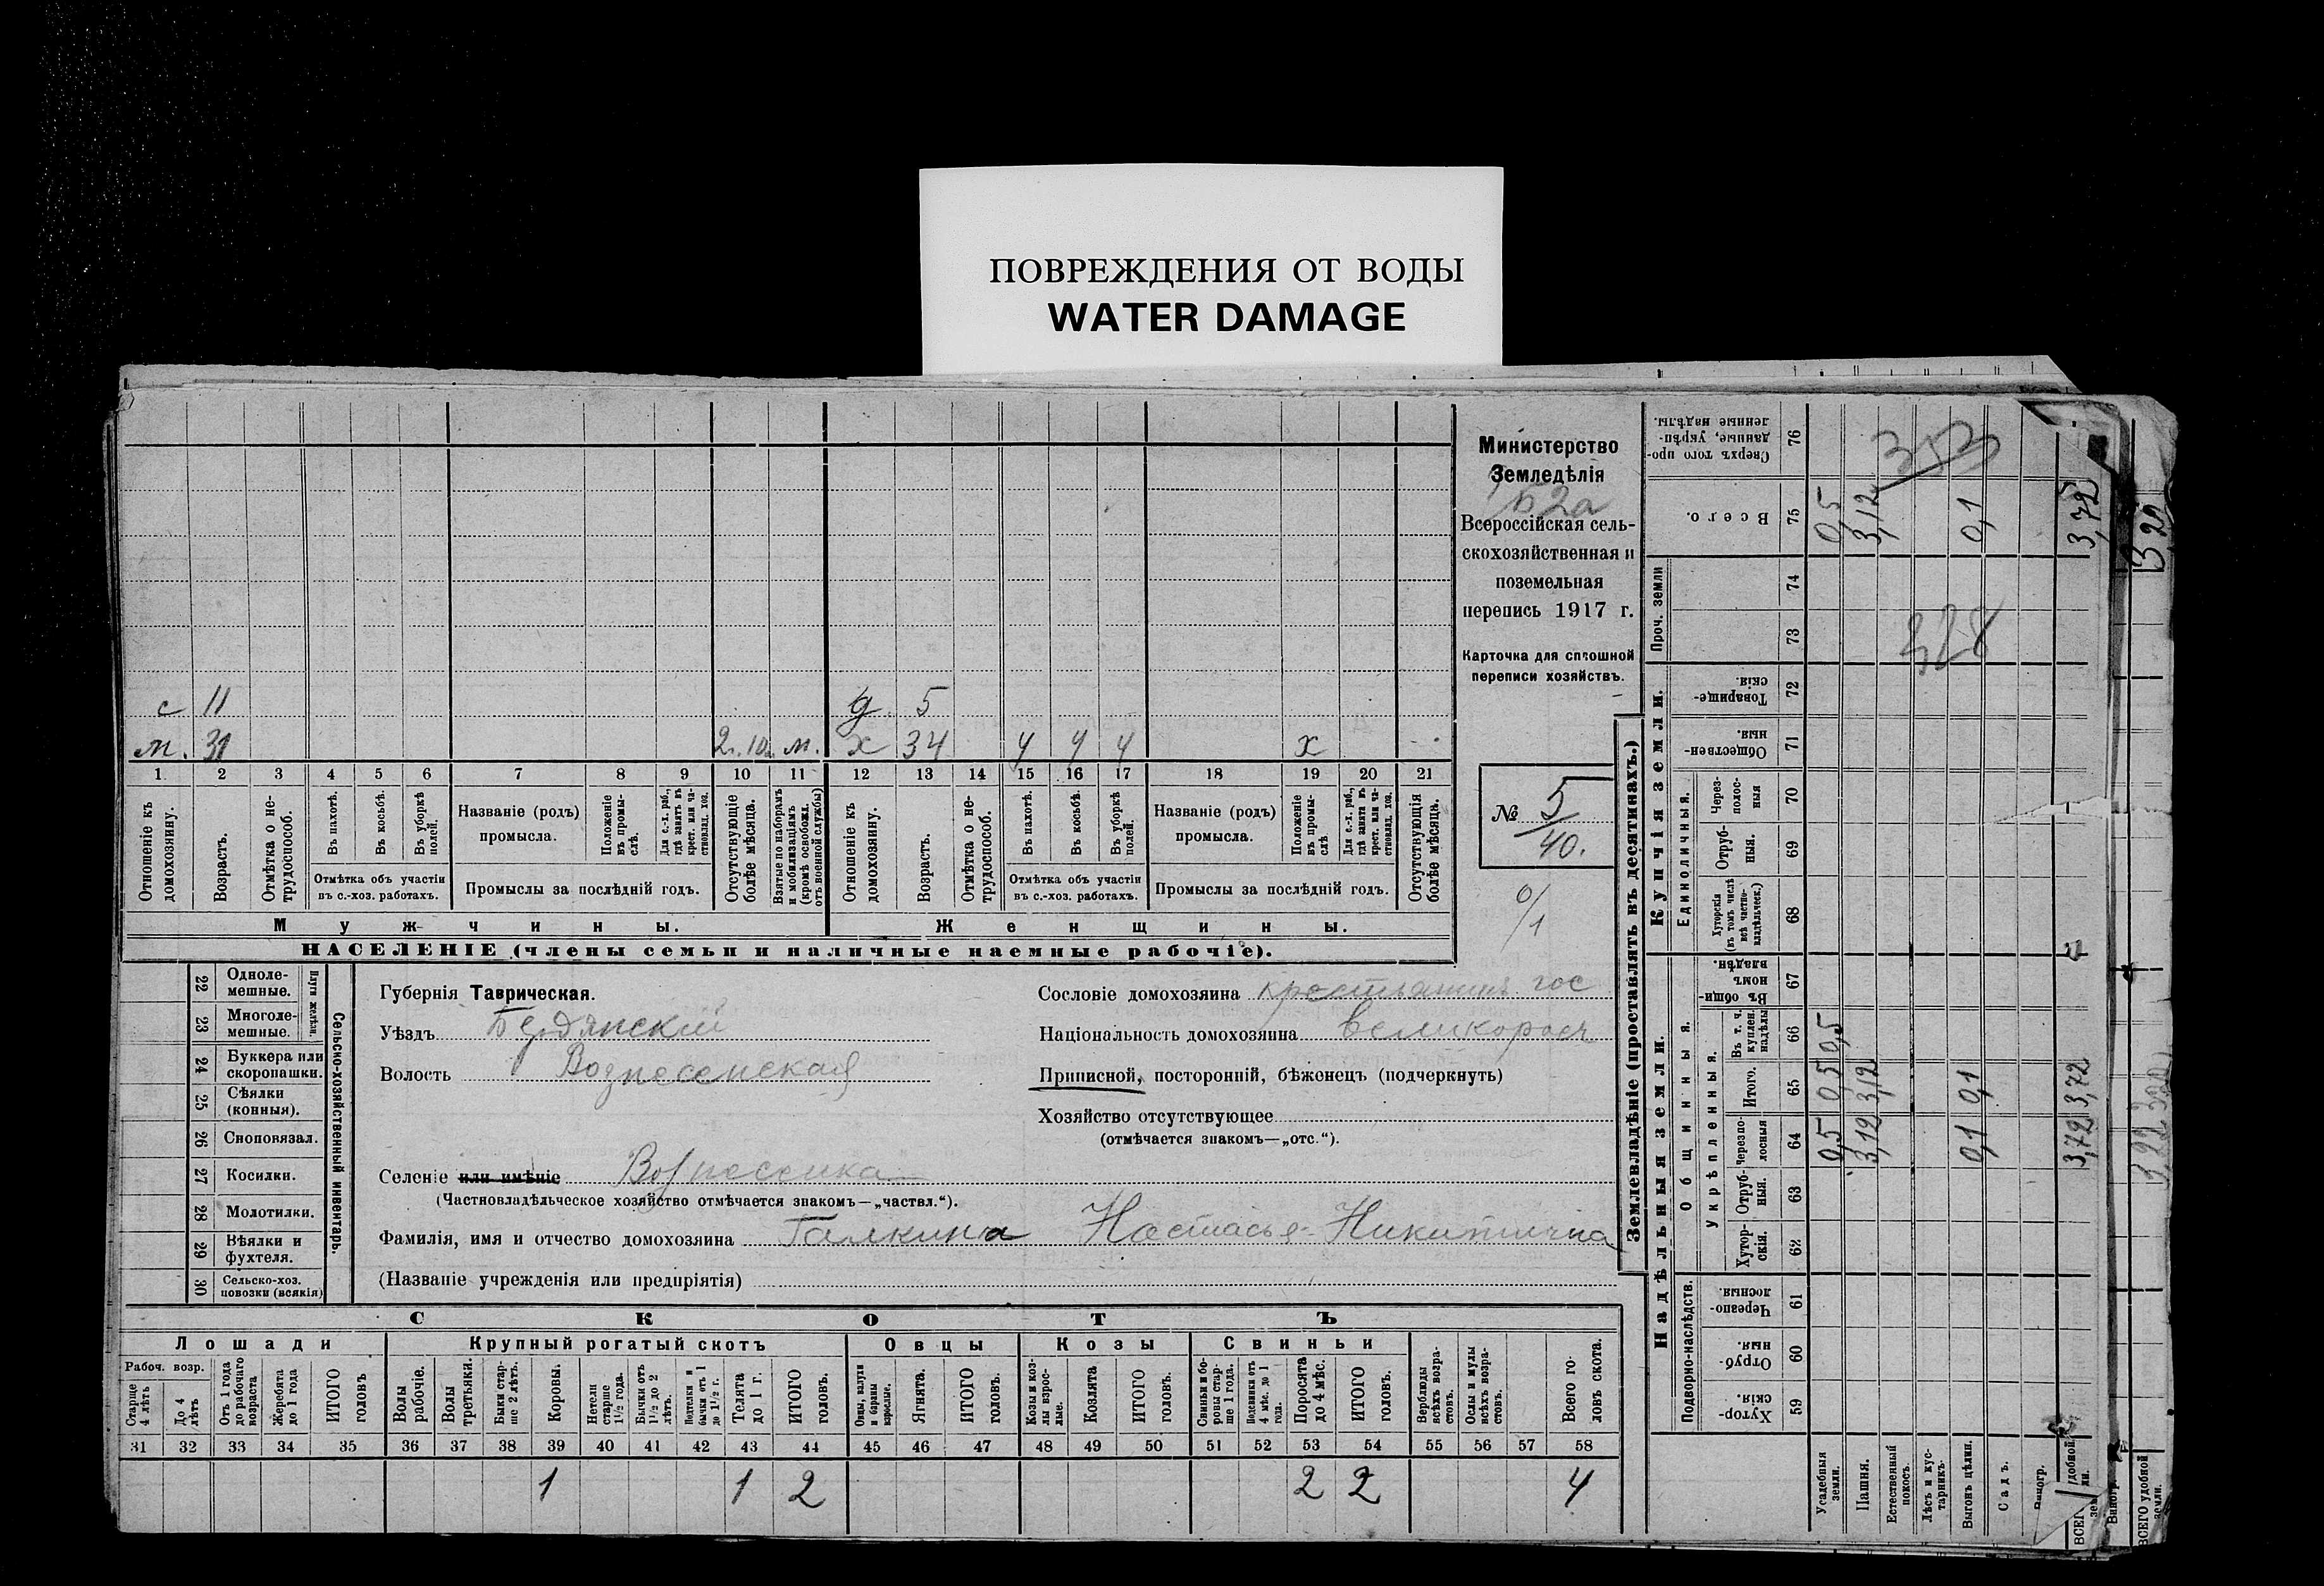 ПОВРЕЖДЕНИЯ ОТ ВОДЫ
WATER DAMAGE
Министерство
Земледѣлія
52а
Всероссійская сель-
скохозяйственная и
поземельная
перепись 1917 г.
Карточка для сплошной
переписи хозяйствъ.
№ 5
40.
0/1
с 11 д. 5
м. 31 2 г. 10 м. х 34 ч ч ч х
1 2 3 4 5 6 7 8 9 10 11 12 13 14 15 16 17 18 19 20 21
Отношеніе къ домохозяину.
Возрастъ.
Отмѣтка о не-трудоспособ.
Въ пахотѣ.
Въ косьбѣ.
Въ уборкѣ полей.
Отмѣтка объ участіи
въ с.-хоз. работахъ.
Названіе (родъ)
промысла.
Положеніе въ промы-слѣ.
Для с.-х. раб., гдѣ занятъ въ крест. или ча-стновлад. хоз.
Промыслы за послѣдній годъ.
Отсутствующіе болѣе мѣсяца.
Взятые по наборамъ и мобилизаціямъ (кромѣ освобожд. отъ военной службы)
Отношеніе къ домохозяину.
Возрастъ.
Отмѣтка о не-трудоспособ.
Въ пахотѣ.
Въ косьбѣ.
Въ уборкѣ полей.
Отмѣтка объ участіи
въ с.-хоз. работахъ.
Названіе (родъ)
промысла.
Положеніе въ промы-слѣ
Для с.-х. раб., гдѣ занята въ крест. или ча-стновлад. хоз.
Промыслы за послѣдній годъ.
Отсутствующія болѣе мѣсяца.
Мужчины. Женщины.
НАСЕЛЕНІЕ (члены семьи и наличные наемные рабочіе).
22 Одноле-мешные.
23 Многоле-мешные.
Плуги желѣзн.
24 Буккера или скоропашки.
25 Сѣялки (конныя).
26 Сноповязал.
27 Косилки.
28 Молотилки.
29 Вѣялки и фухтеля.
30 Сельско-хоз. повозки (всякія)
Сельско-хозяйственный инвентарь.
Губернія Таврическая.
Уѣздъ Бердянскій
Волость Вознесенская
Селеніе или имѣніе Вознесенка
(Частновладѣльческое хозяйство отмѣчается знакомъ—„частвл.“).
Фамилія, имя и отчество домохозяина Галкина Настасья Никитична
(Названіе учрежденія или предпріятія)
Сословіе домохозяина крестьянинъ гос
Національность домохозяина великороссъ
Приписной, посторонній, бѣженецъ (подчеркнуть)
Хозяйство отсутствующее
(отмѣчается знакомъ—„отс.“).
СКОТЪ
Лошади Крупный рогатый скотъ Овцы Козы Свиньи
Рабоч. возр.
Старше 4 лѣтъ
До 4 лѣтъ
Отъ 1 года до рабочаго возраста
Жеребята до 1 года
ИТОГО головъ
Волы рабочіе.
Волы третьяки.
Быки стар-ше 2 лѣтъ.
Коровы.
Нетели старше 1½ года.
Бычки отъ 1½ до 2 лѣтъ.
Подтелки и бычки отъ 1 до 1½ г.
Телята до 1 г.
ИТОГО головъ.
Овцы, валухи и бараны взрослые.
Ягнята.
ИТОГО головъ.
Козы и коз-лы взрос-лые.
Козлята
ИТОГО головъ.
Свиньи и бо-ровы стар-ше 1 года.
Подсвинки отъ 4 мѣс. до 1 года.
Поросята до 4 мѣс.
ИТОГО головъ.
Верблюды всѣхъ возра-стовъ.
Ослы и мулы всѣхъ возра-стовъ.
Всего го-ловъ скота.
31 32 33 34 35 36 37 38 39 40 41 42 43 44 45 46 47 48 49 50 51 52 53 54 55 56 57 58
1 1 2 2 2 4
Землевладѣніе (проставлять въ десятинахъ.)
Надѣльныя земли. Купчія земли. Проч. земли
Подворно-наслѣдств.
Общинныя.
Укрѣпленныя.
Единоличныя.
Хутор-скія. 59
Отруб-ныя. 60
Черезпо-лосныя 61
Хутор-скія. 62
Отруб-ныя. 63
Черезпо-лосныя 64
Итого. 65
Въ т. ч. куплен. надѣлы 66
Въ общи-номъ владѣн. 67
Хуторскія (въ томъ числѣ всѣ частно-владѣльческ.) 68
Отруб-ныя. 69
Через-полос-ныя 70
Обществен-ныя. 71
Товарище-скія. 72
73
74
Всего. 75
Сверхъ того про-данные, укрѣп-ленные надѣлы. 76
Усадебныя земли. 0,5 0,5 0,5 0,5
Пашня. 3,12 3,12 3,12
Естественный покосъ.
Лѣсъ и кус-тарникъ.
Выгонъ цѣлин. 0,1 0,1 0,1
Садъ.
Виногр.
ВСЕГО удобной земли. 3,72 3,72 3,72
353
328
Виногр.
ВСЕГО удобной земли.